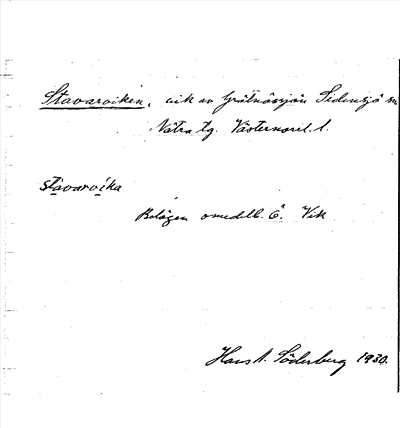 Stavarviken, vik av Grätnässjön Sidensjö sn
Nätra tg. Västernorrl. l.
stavarvika
Belägen omedelb. Ö. Vik
Hans A. Söderberg 1930.